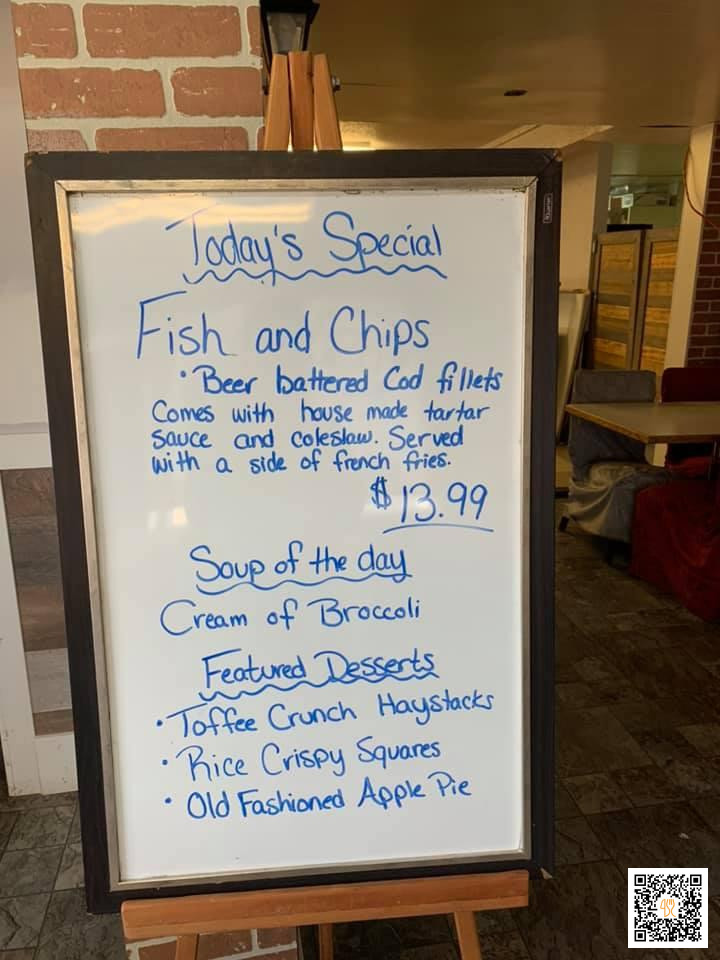 Today's Special
Fish and Chips
• Beer battered Cod fillets
Comes with house made tartar
sauce and coleslaw. Served
with a side of french fries.
$13.99
Soup of the day
Cream of Broccoli
Featured Desserts
• Toffee Crunch Haystacks
• Rice Crispy Squares
• Old Fashioned Apple Pie